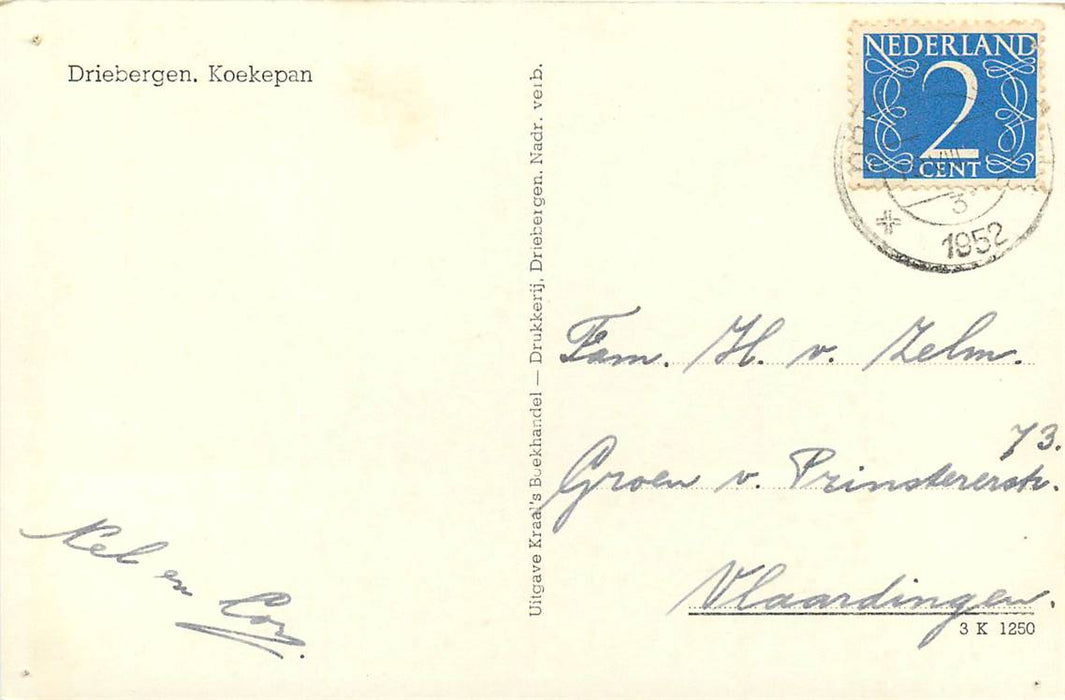 Driebergen. Koekepan
NEDERLAND
2
CENT
VIII
3
1952
Uitgave Kraal's Boekhandel — Drukkerij, Driebergen. Nadr. verb.
Fam. H. v. Zelm.
73.
Groen v. Prinstererstr.
Vlaardingen.
Nel en Cor.
3 K 1250